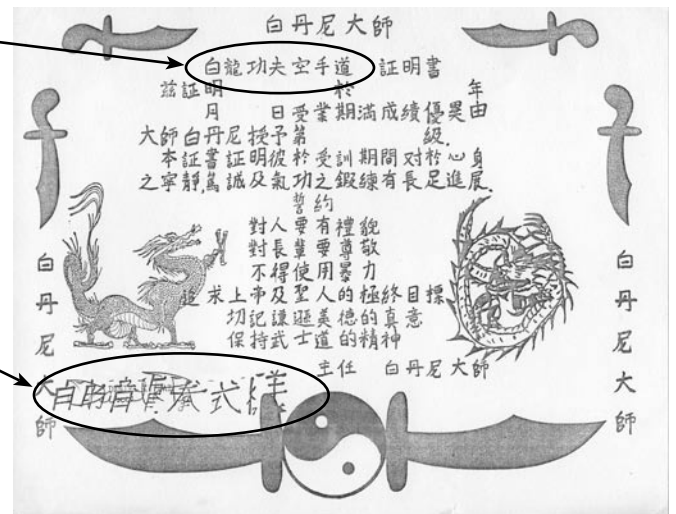 白丹尼大師
白龍功夫空手道 証明書
茲証明 於 年
月 日受業期滿成績優異由
大師白丹尼授予第 級.
本証書証明彼於受訓期間对於心身
之寧靜,篤誠及氣功之鍛練有長足進展.
誓約
對人要有禮貌
對長輩要尊敬
不得使用暴力
追求上帝及聖人的極終目標
切記謙遜美德的真意
保持武士道的精神
主任 白丹尼大師
白丹尼大師
白丹尼大師